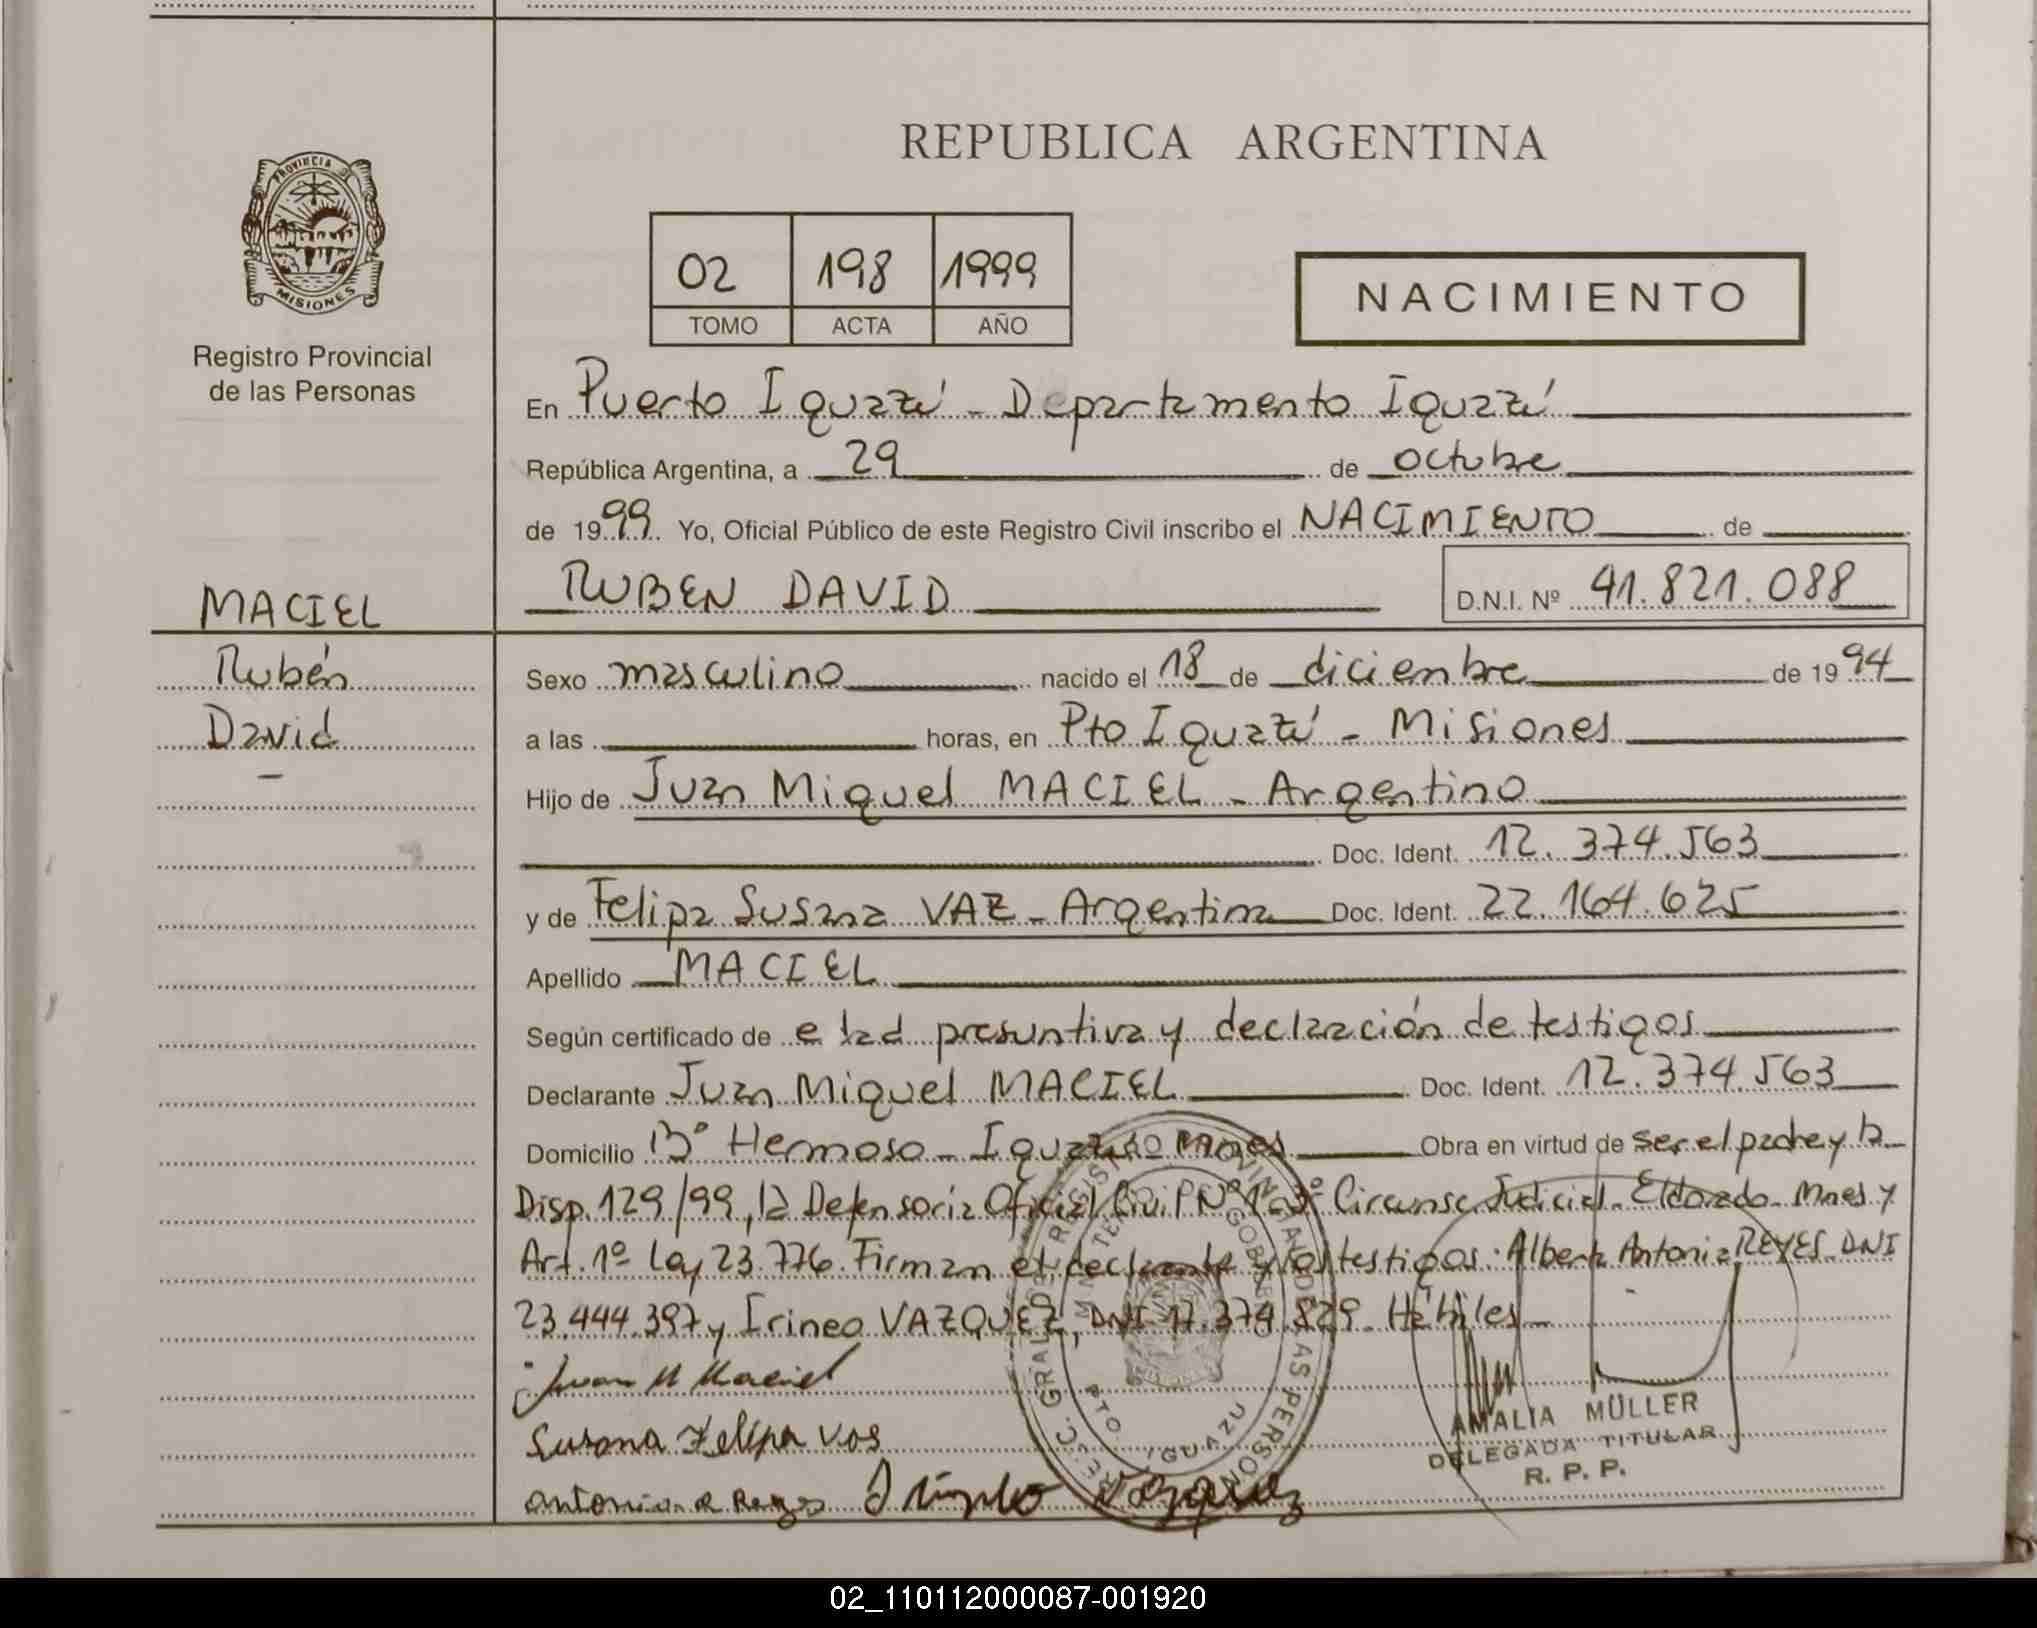 REPUBLICA ARGENTINA
PROVINCIA DE
MISIONES
Registro Provincial
de las Personas
02 198 1999
TOMO ACTA AÑO
NACIMIENTO
En Puerto Iguazú - Departamento Iguazú
República Argentina, a 29 de octubre
de 1999. Yo, Oficial Público de este Registro Civil inscribo el NACIMIENTO de
RUBEN DAVID D.N.I. Nº 41.821.088
MACIEL
Rubén
David
Sexo masculino nacido el 18 de diciembre de 1994
a las horas, en Pto Iguazú - Misiones
Hijo de Juan Miguel MACIEL - Argentino
Doc. Ident. 12.374.563
y de Felipa Susana VAZ - Argentina Doc. Ident. 22.164.625
Apellido MACIEL
Según certificado de edad presuntiva y declaración de testigos
Declarante Juan Miguel MACIEL Doc. Ident. 12.374.563
Domicilio Bº Hermoso - Iguazú Mnes Obra en virtud de ser el padre y la
Disp. 129/99, la Defensoría Oficial Civil Nº 1 - 3º Circunsc. Judicial - Eldorado - Mnes y
Art. 1º Ley 23.776. Firman el declarante y los testigos: Alberta Antonia REYES DNI
23.444.397 y Irineo VAZQUEZ, DNI 17.374.829. Hábiles -
Juan M Maciel
Susana Felipa Vas
Antonia A Reyes Vazquez
PTO IGUAZU
AMALIA MÜLLER
DELEGADA TITULAR
R. P. P.
02_110112000087-001920